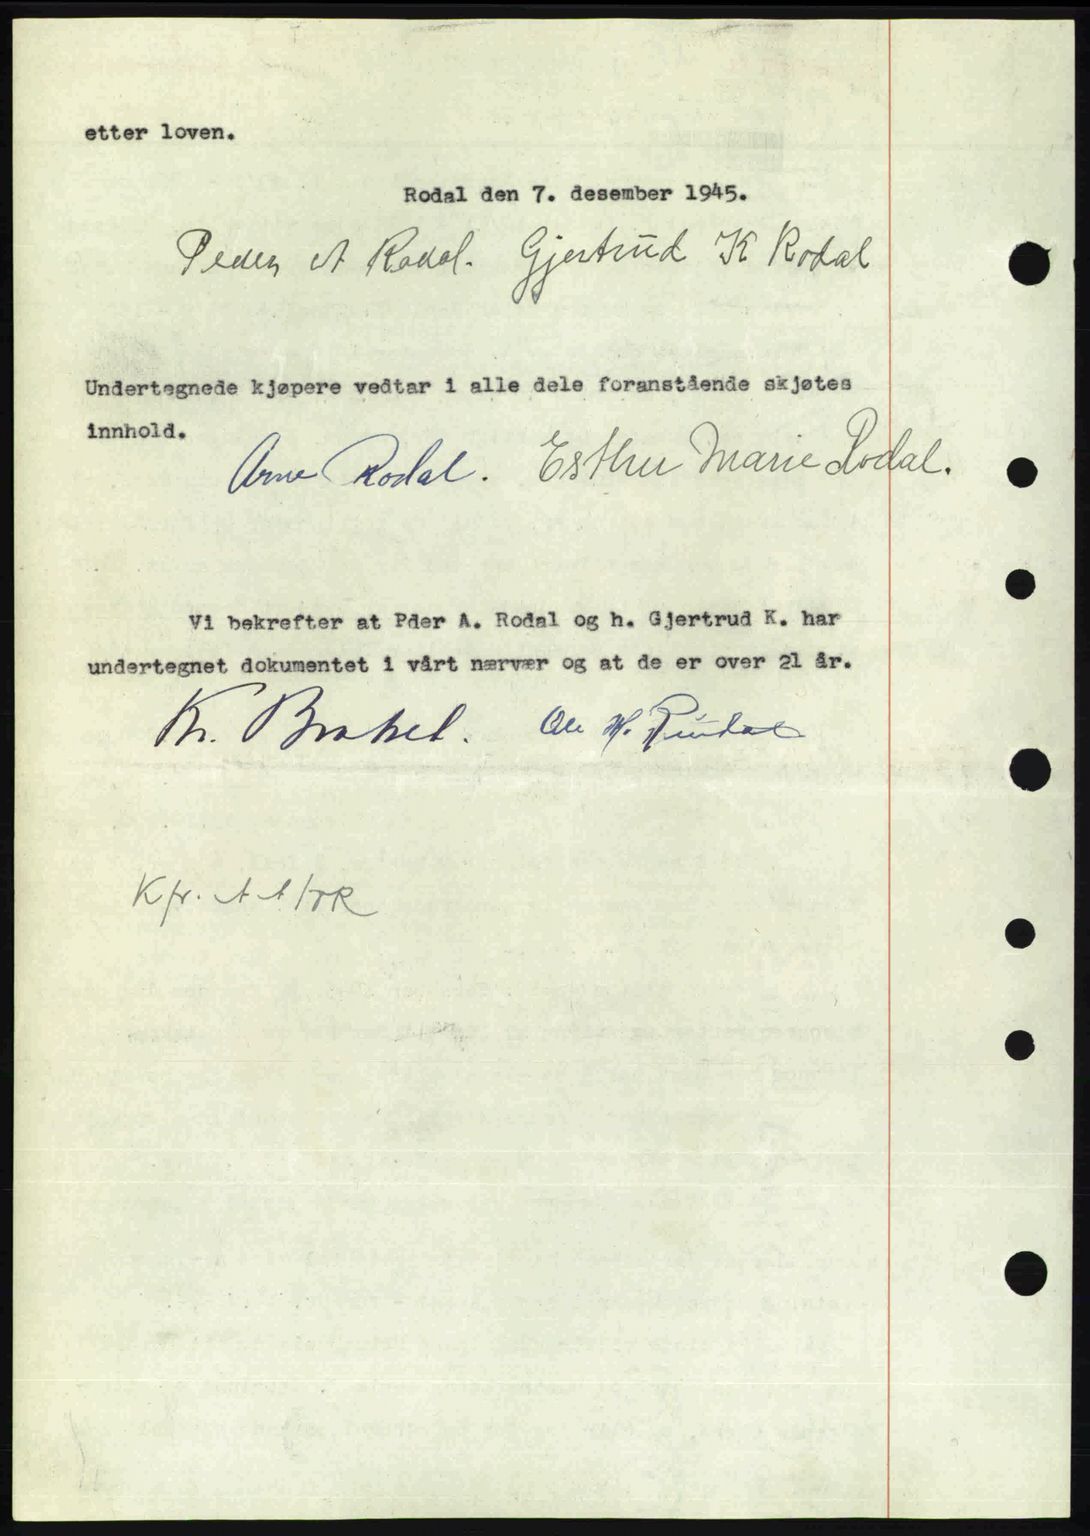 etter loven.
Rodal den 7. desember 1945.
Peder A Rodal. Gjertrud K Rodal
Undertegnede kjøpere vedtar i alle dele foranstående skjøtes
innhold.
Arne Rodal. Esther Marie Rodal.
Vi bekrefter at Pder A. Rodal og h. Gjertrud K. har
undertegnet dokumentet i vårt nærvær og at de er over 21 år.
Kr. Ole H.
Kfr.